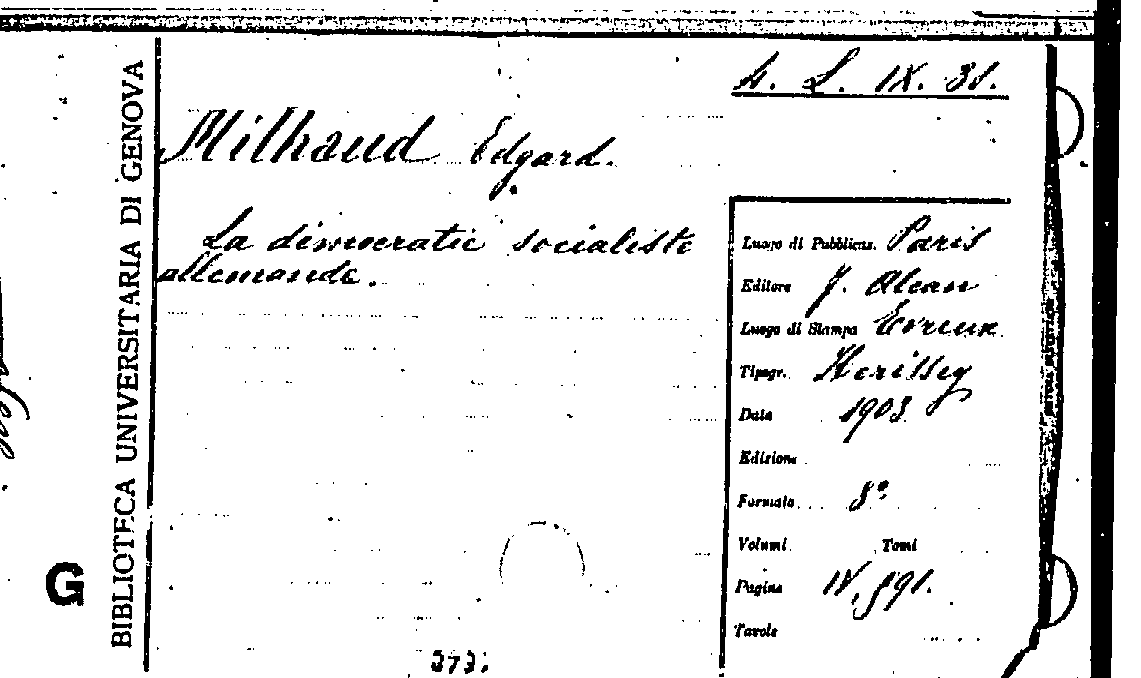 4. L. IX. 31.
Milhaud Edgard.
La démocratie socialiste
allemande.
Luogo di Pubblicaz. Paris
Editore F. Alcan
Luogo di Stampa Evreux
Tipogr. Herissey
Data 1903.
Edizione
Formato 8°
Volumi Tomi
Pagine IV, 591.
Tavole
BIBLIOTECA UNIVERSITARIA DI GENOVA
G